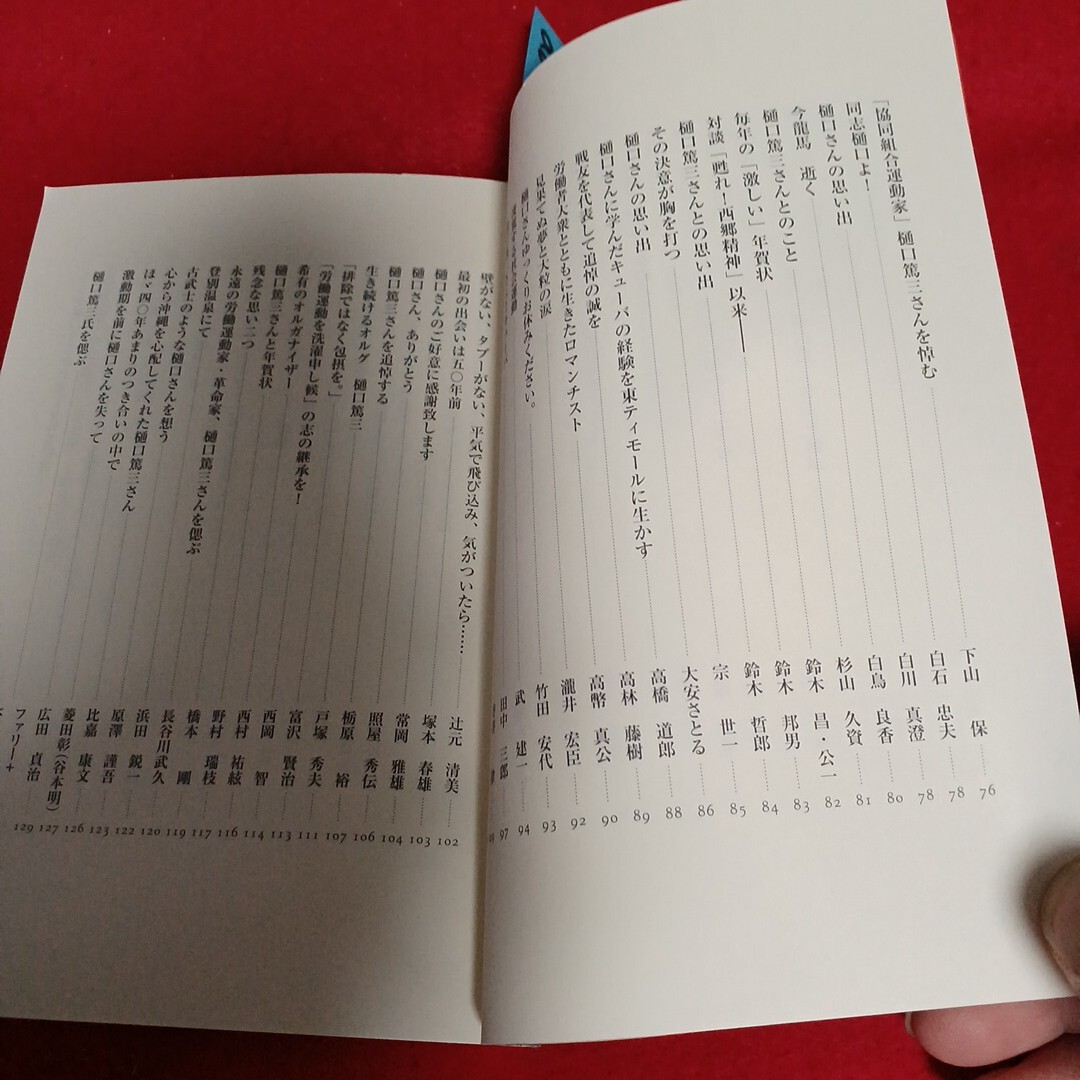 「協同組合運動家」樋口篤三さんを悼む 下山 保 76
同志樋口よ! 白石 忠夫 78
樋口さんの思い出 白川 真澄 78
今龍馬 逝く 白鳥 良香 80
樋口篤三さんとのこと 杉山 久資 81
毎年の「激しい」年賀状 鈴木 昌・公一 82
対談「甦れ!西郷精神」以来── 鈴木 邦男 83
樋口篤三さんとの思い出 鈴木 哲郎 84
その決意が胸を打つ 宗 世一 85
樋口さんの思い出 大安さとる 86
樋口さんに学んだキューバの経験を東ティモールに生かす 高橋 道郎 88
戦友を代表して追悼の誠を 高林 藤樹 89
労働者大衆とともに生きたロマンチスト 高幣 真公 90
見果てぬ夢と大粒の涙 瀧井 宏臣 92
樋口さんゆっくりお休みください。 竹田 安代 93
武 建一 94
田中 三郎 97
壁がない、タブーがない、平気で飛び込み、気がついたら…… 辻元 清美 102
最初の出会いは五〇年前 塚本 春雄 103
樋口さんのご好意に感謝致します 常岡 雅雄 104
樋口さん、ありがとう 照屋 秀伝 106
樋口篤三さんを追悼する 栃原 裕 107
生き続けるオルグ 樋口篤三 戸塚 秀夫 111
「排除ではなく包摂を。」 富沢 賢治 113
「労働運動を洗濯申し候」の志の継承を! 西岡 智 114
希有のオルガナイザー 西村 祐紘 116
樋口篤三さんと年賀状 野村 瑞枝 117
残念な思い二つ 橋本 剛 119
永遠の労働運動家・革命家、樋口篤三さんを偲ぶ 長谷川武久 120
登別温泉にて 浜田 鋭一 122
古武士のような樋口さんを想う 原澤 謹吾 123
心から沖縄を心配してくれた樋口篤三さん 比嘉 康文 126
ほゞ四〇年あまりのつき合いの中で 菱田彰(谷本明) 127
激動期を前に樋口さんを失って 広田 貞治 129
樋口篤三氏を偲ぶ ファリー+